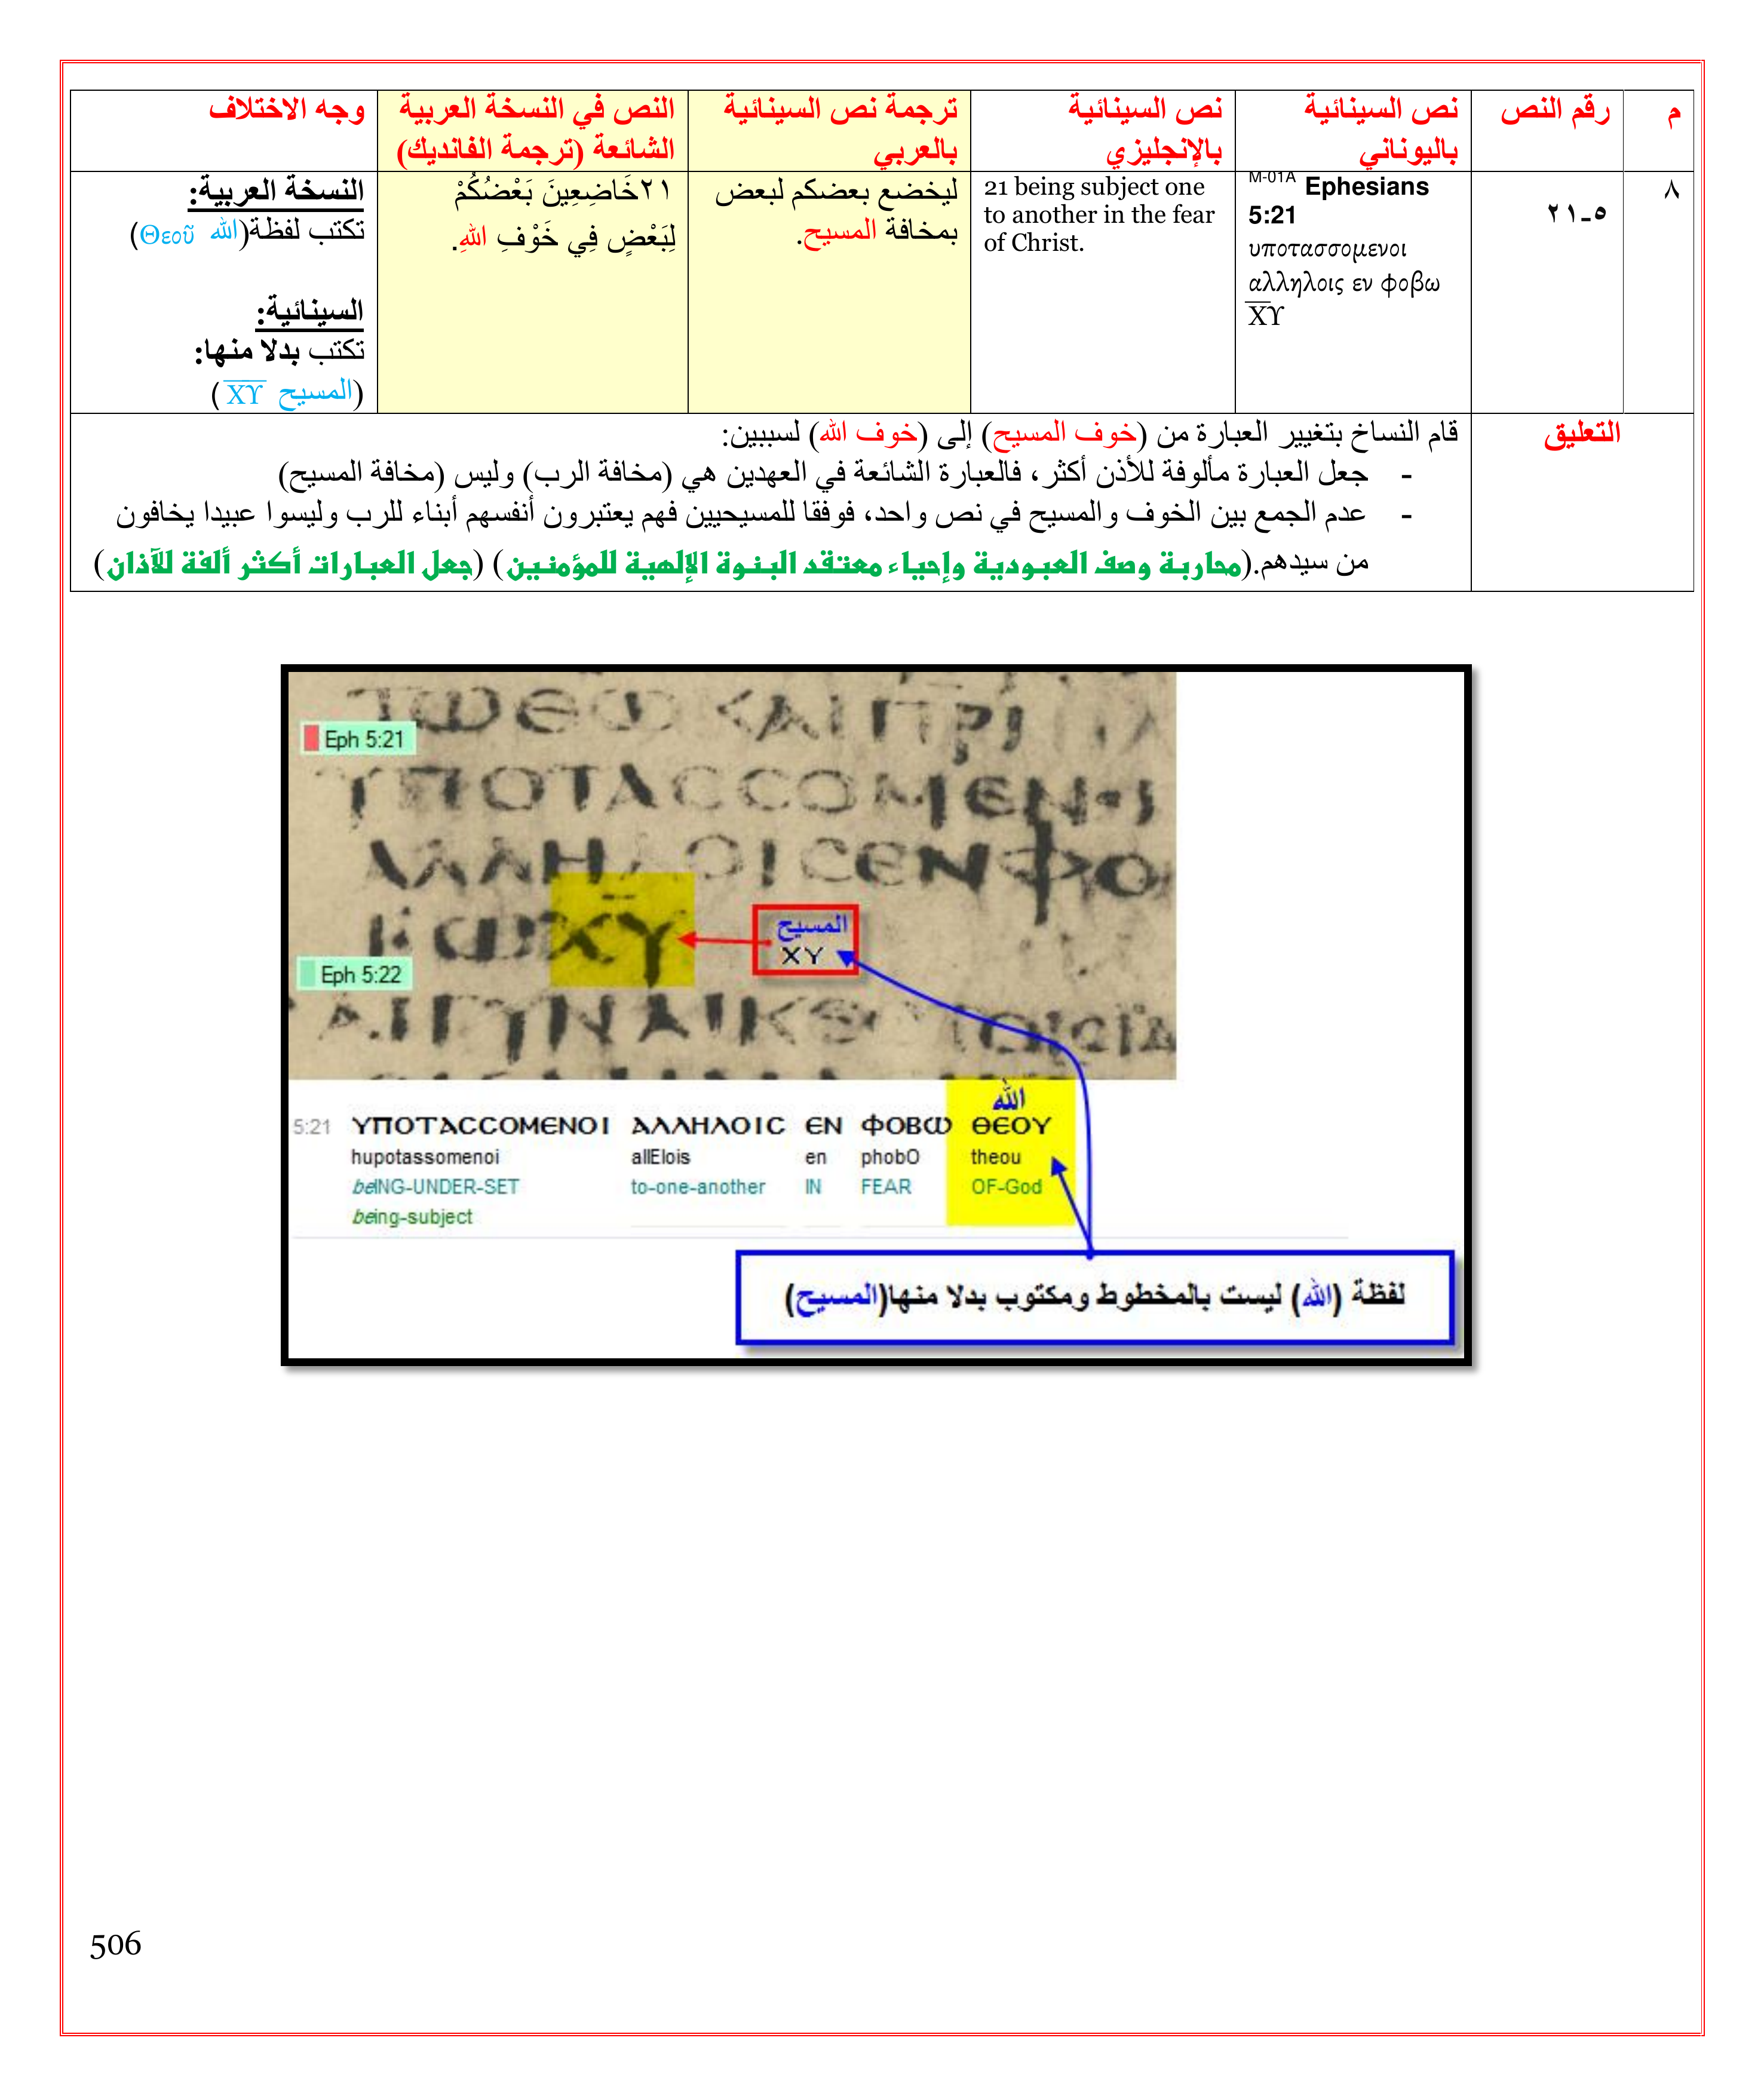 م
رقم النص
نص السينائية
باليوناني
نص السينائية
بالإنجليزي
ترجمة نص السينائية
بالعربي
النص في النسخة العربية
الشائعة (ترجمة الفانديك)
وجه الاختلاف
٨
٥-٢١
M-01A Ephesians
5:21
υποτασσομενοι
αλληλοις εν φοβω
Χ̅Υ̅
21 being subject one
to another in the fear
of Christ.
ليخضع بعضكم لبعض
بمخافة المسيح.
٢١خَاضِعِينَ بَعْضُكُمْ
لِبَعْضٍ فِي خَوْفِ اللهِ.
النسخة العربية:
تكتب لفظة(الله Θεοῦ)
السينائية:
تكتب بدلا منها:
(المسيح Χ̅Υ̅ )
التعليق
قام النساخ بتغيير العبارة من (خوف المسيح) إلى (خوف الله) لسببين:
- جعل العبارة مألوفة للأذن أكثر، فالعبارة الشائعة في العهدين هي (مخافة الرب) وليس (مخافة المسيح)
- عدم الجمع بين الخوف والمسيح في نص واحد، فوفقا للمسيحيين فهم يعتبرون أنفسهم أبناء للرب وليسوا عبيدا يخافون
من سيدهم.(محاربة وصف العبودية وإحياء معتقد البنوة الإلهية للمؤمنين) (جعل العبارات أكثر ألفة للآذان)
ΤΩΘΩ ΚΑΙ ΠΡΙ
Eph 5:21
ΥΠΟΤΑϹϹΟΜΕΝΟΙ
ΑΛΛΗΛΟΙϹΕΝΦΟ
ΒΩΧΥ
المسيح
ΧΥ
Eph 5:22
ΑΙΓΥΝΑΙΚΕϹ
الله
5:21 ΥΠΟΤΑϹϹΟΜΕΝΟΙ ΑΛΛΗΛΟΙϹ ΕΝ ΦΟΒΩ ΘΕΟΥ
hupotassomenoi allElois en phobO theou
beING-UNDER-SET to-one-another IN FEAR OF-God
being-subject
لفظة (الله) ليست بالمخطوط ومكتوب بدلا منها(المسيح)
506